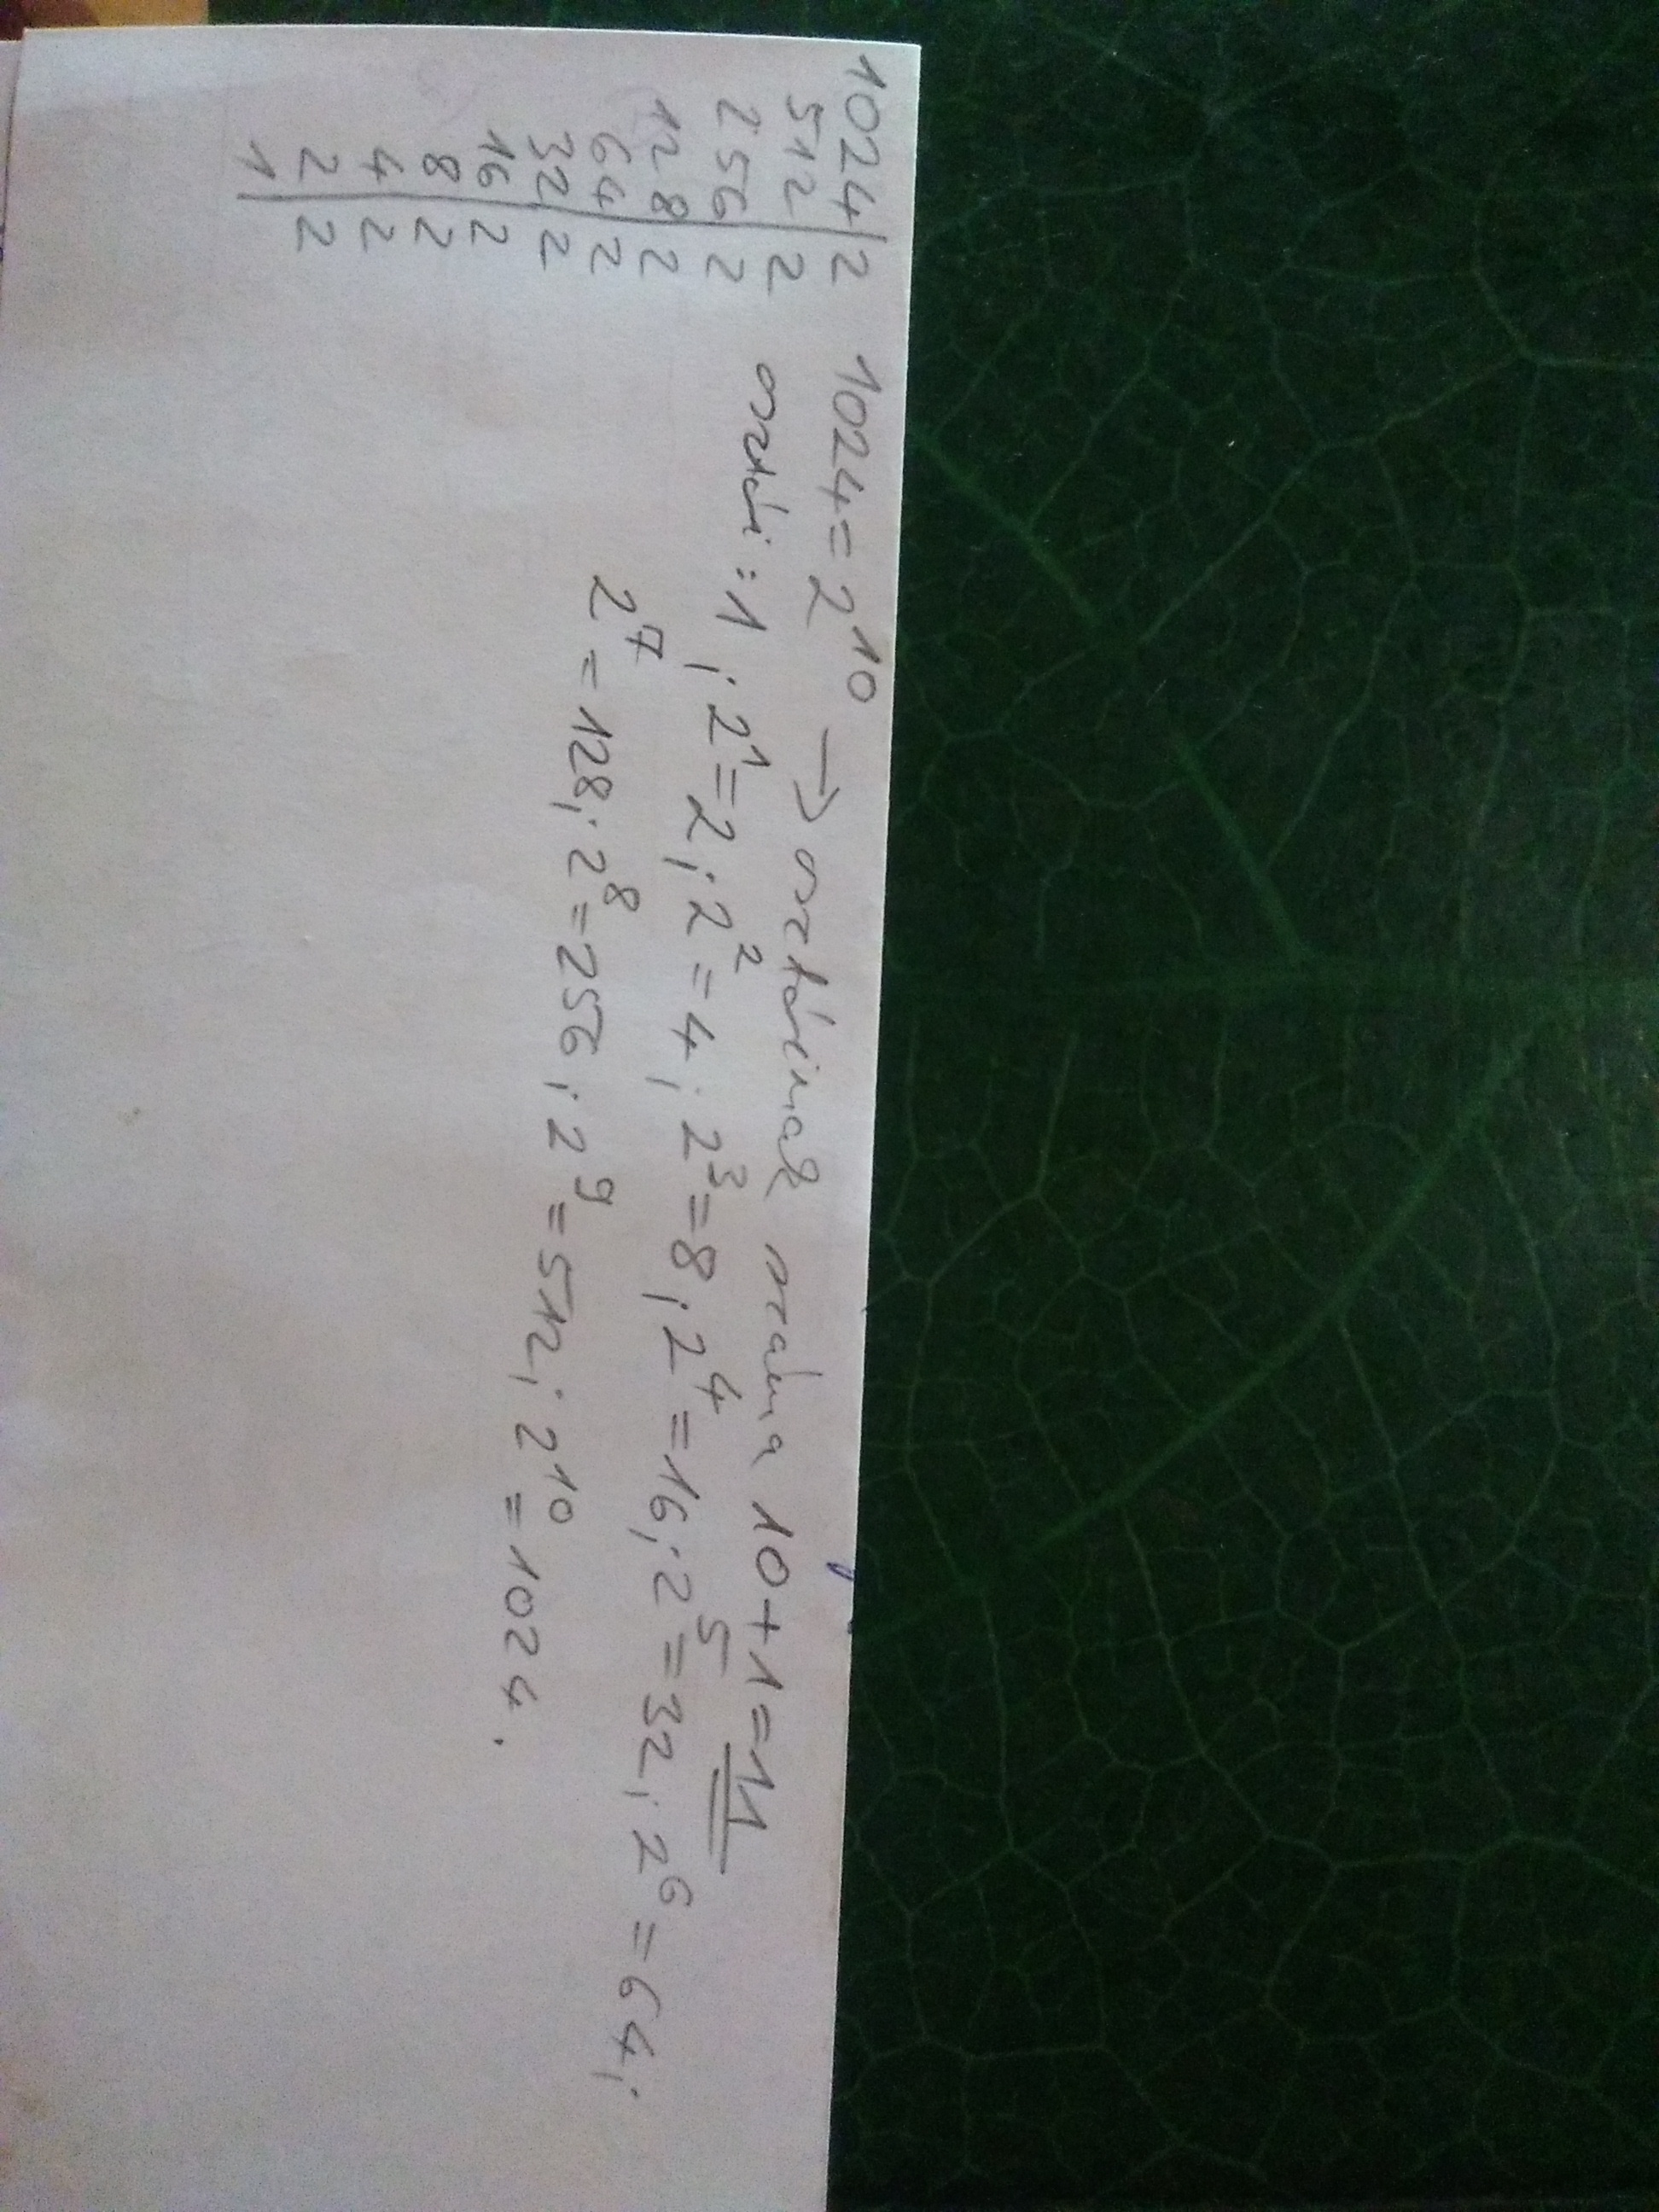 1024|2
512|2
256|2
128|2
64|2
32|2
16|2
8|2
4|2
2|2
1|
1024=2¹⁰ → osztóinak száma 10+1=11
osztói: 1; 2¹=2; 2²=4; 2³=8; 2⁴=16; 2⁵=32; 2⁶=64;
2⁷=128; 2⁸=256; 2⁹=512; 2¹⁰=1024.